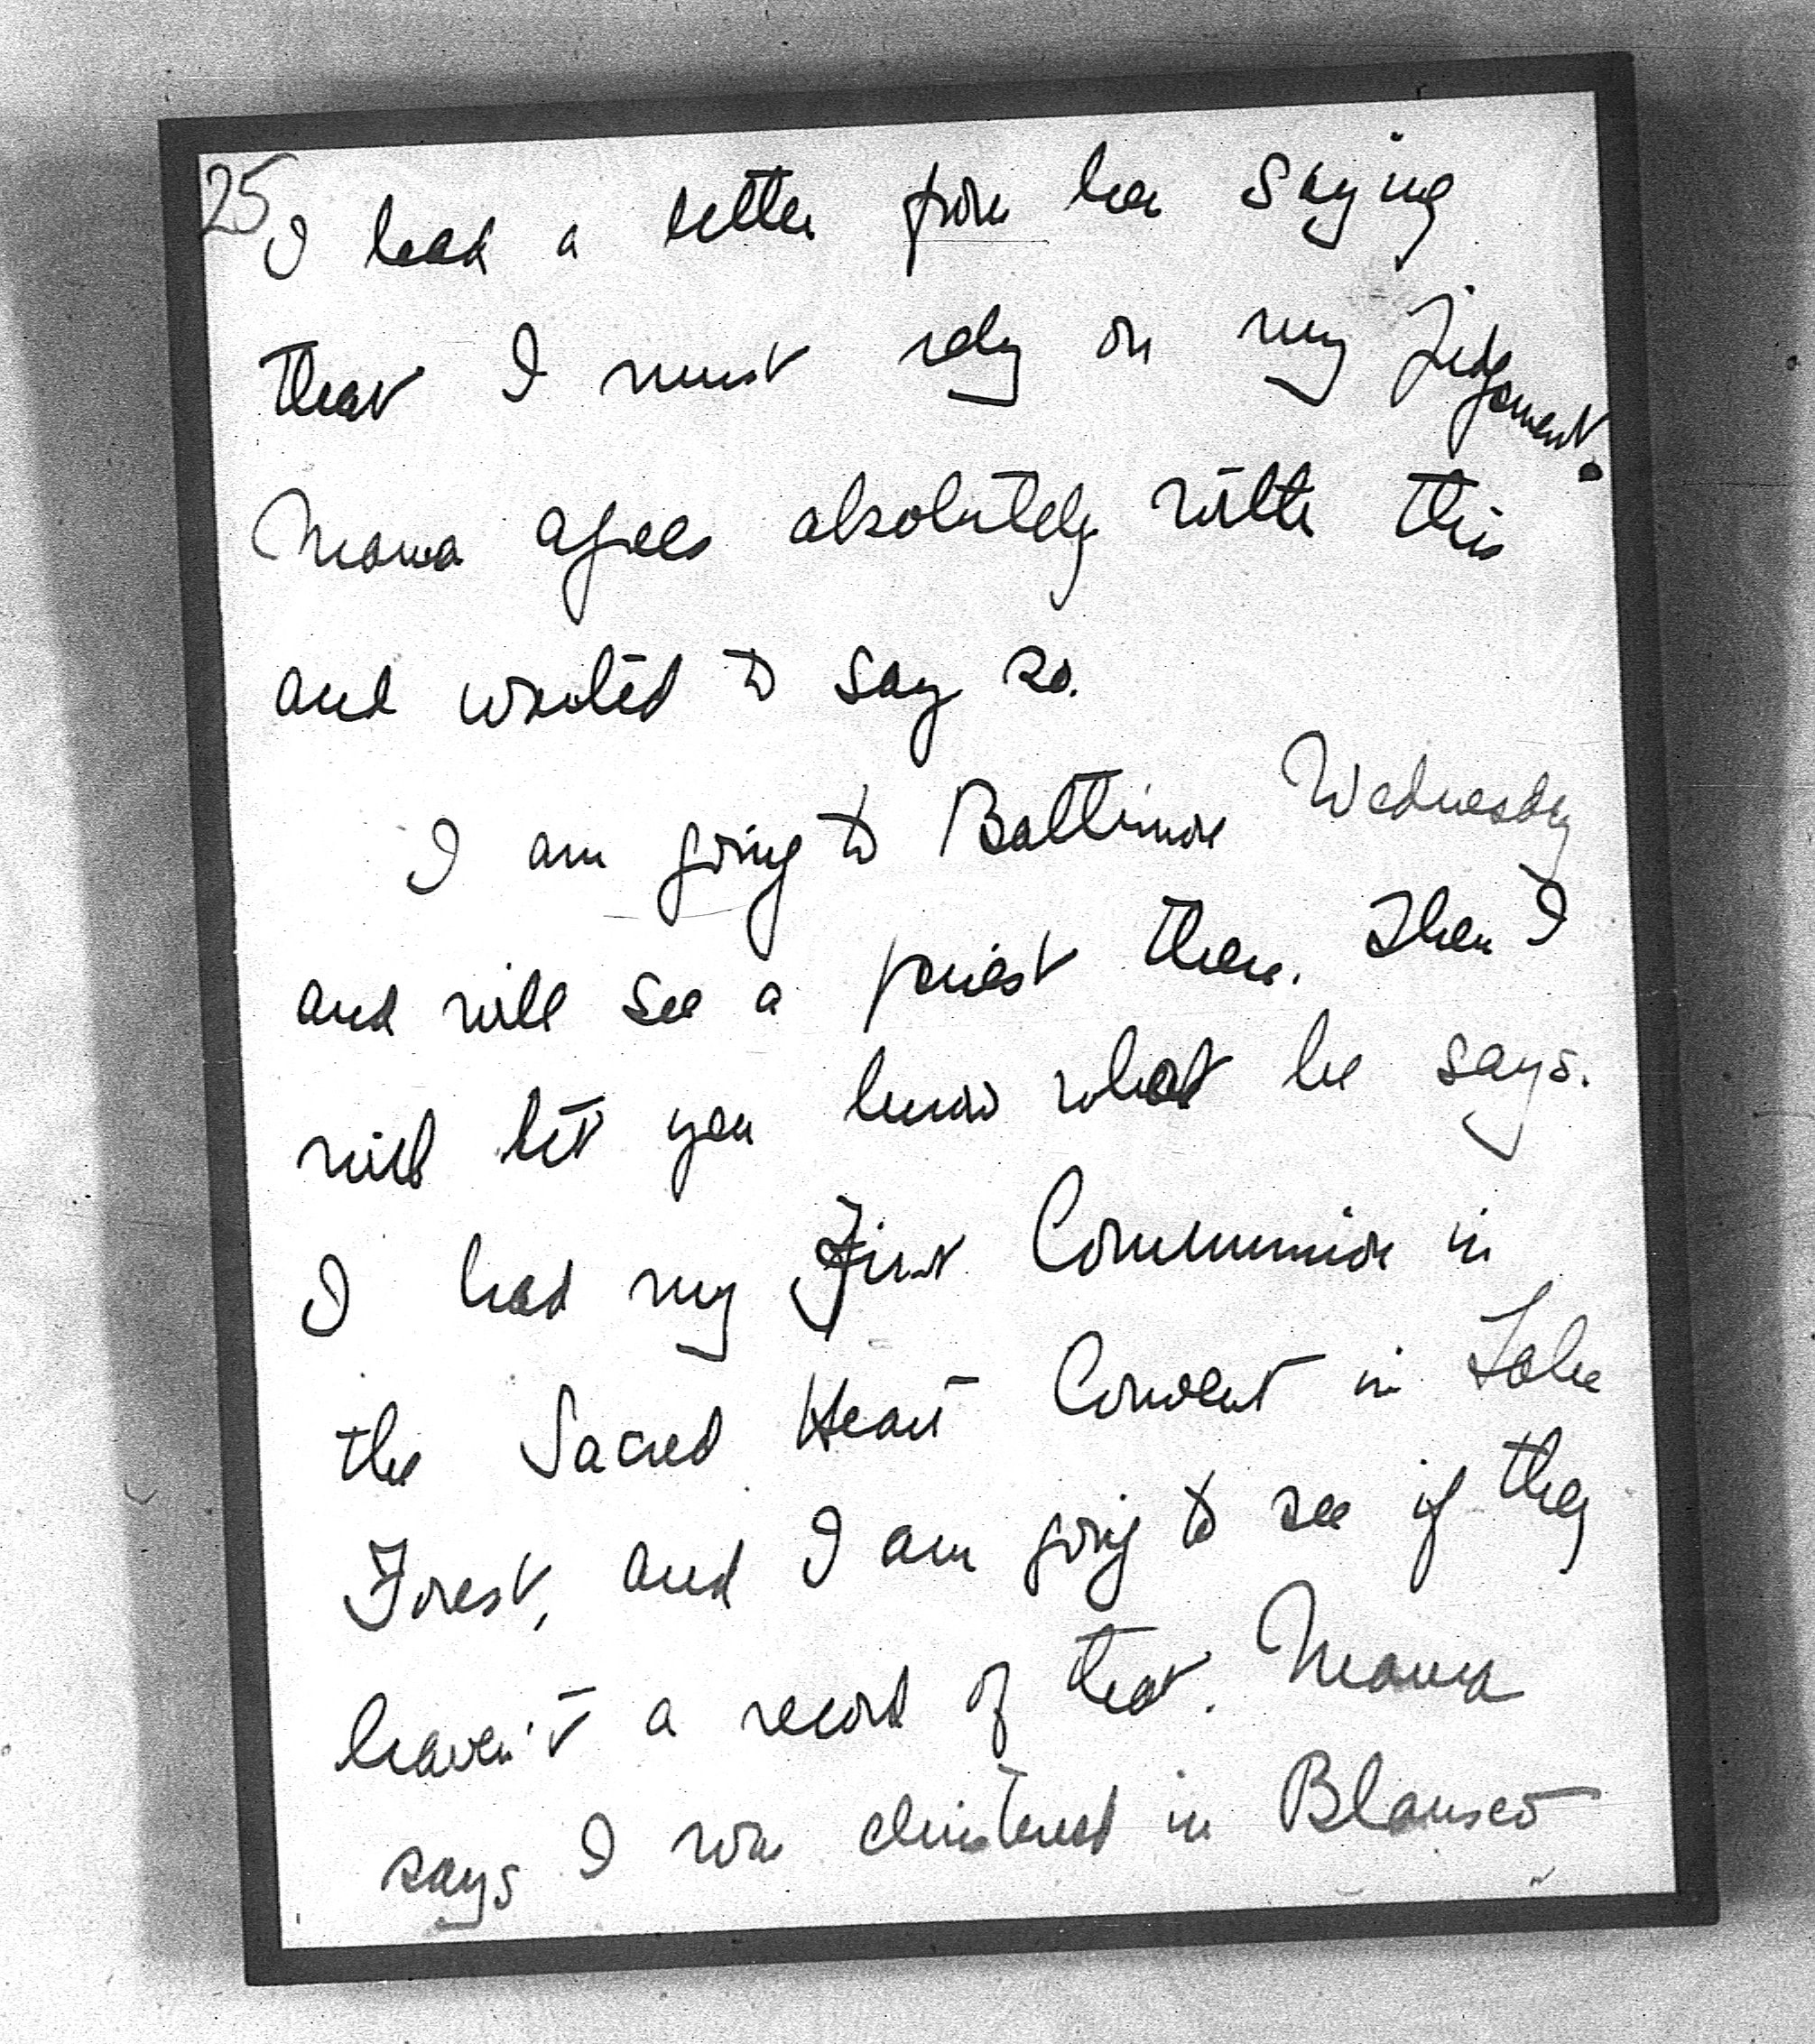 25
I had a letter from her saying
that I must rely on my Judgement.
Mama agrees absolutely with this
and wanted to say so.
I am going to Baltimore Wednesday
and will see a priest there. Then I
will let you know what he says.
I had my First Communion in
the Sacred Heart Convent in Lake
Forest, and I am going to see if they
haven't a record of that. Mama
says I was christened in